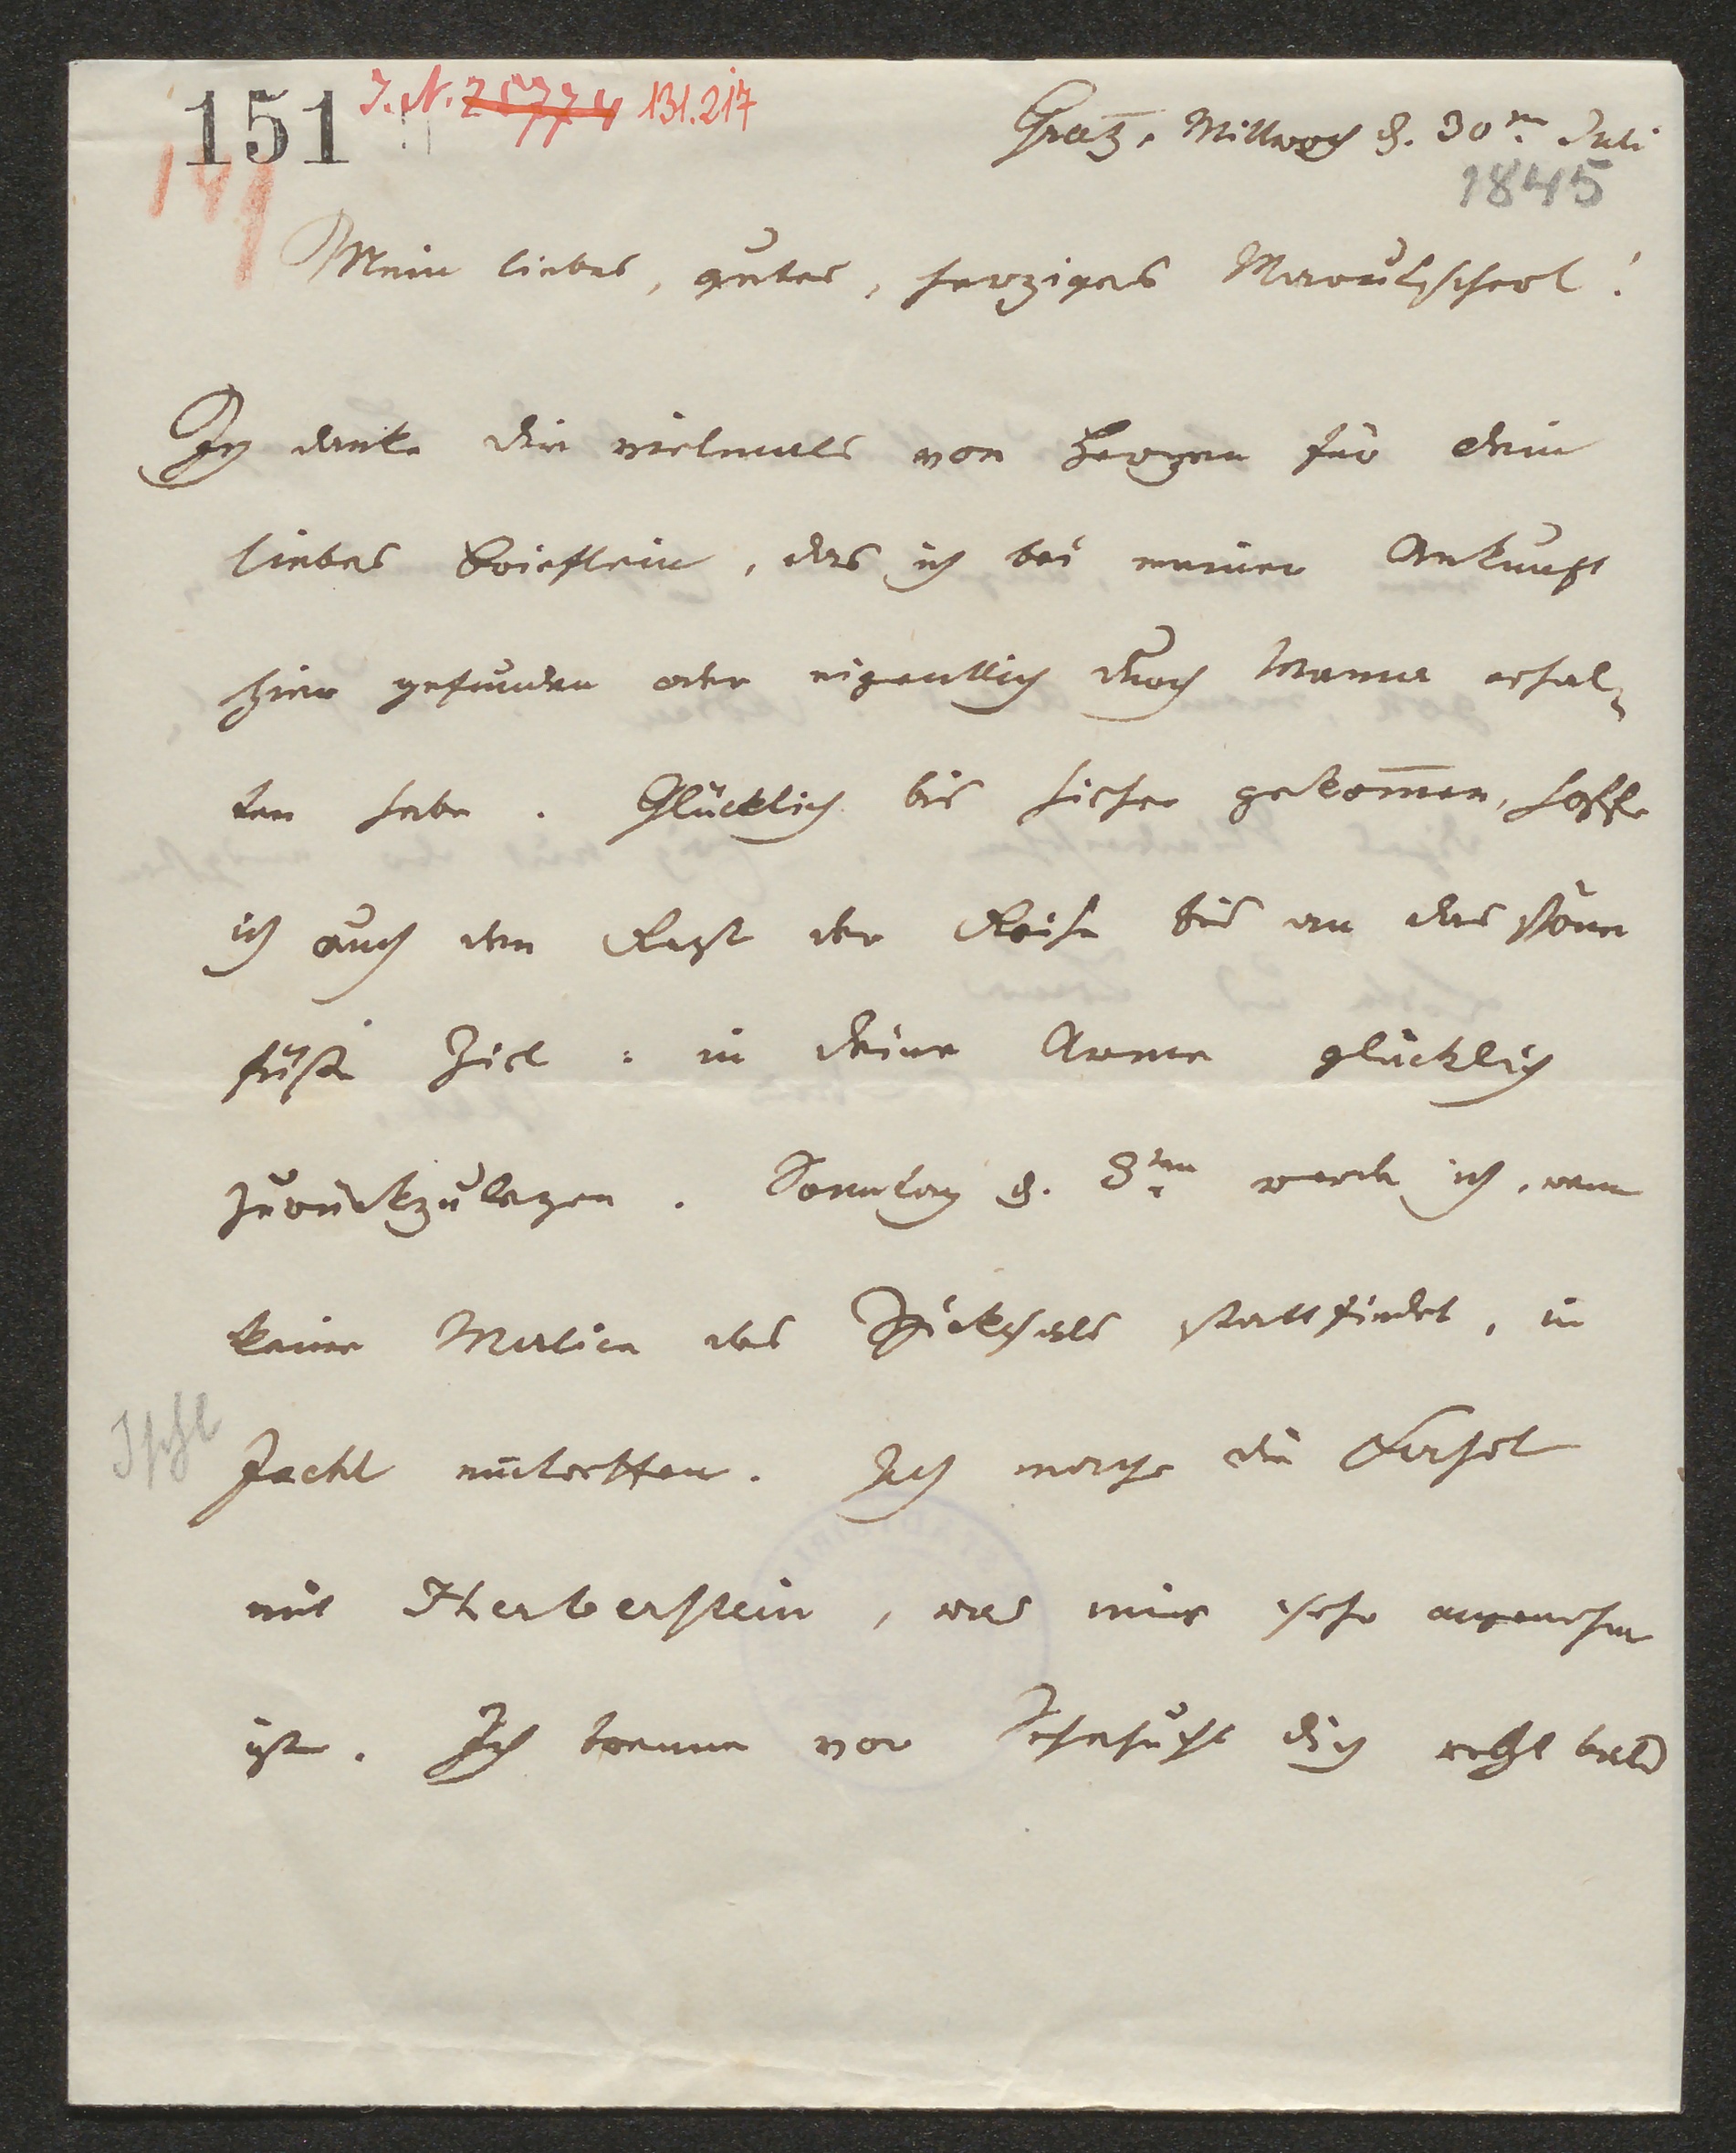 151 J. N. 25774 131.217
Gratz, Mittwoch d. 30n. Juli
141
1845
Mein liebes, gutes, herziges !
Ich danke dir vielmals von Herzen für dein
liebes Brieflein, das ich bei meiner Ankunft
hier gefunden oder eigentlich durch Mama erhal-
ten habe. Glücklich bis hieher gekom̅en, hoffe
ich auch den Rest der Reise bis an das schöne
süße Ziel: in deine Arme glücklich
zurückzulegen. Sonntag d. 3ten werde ich, wenn
keine Malice des Schicksals stattfindet, in
Ischl
Ischl eintreffen. Ich mache die Fahrt
mit Herberstein, was mir sehr angenehm
ist. Ich brenne vor Sehnsucht dich recht bald